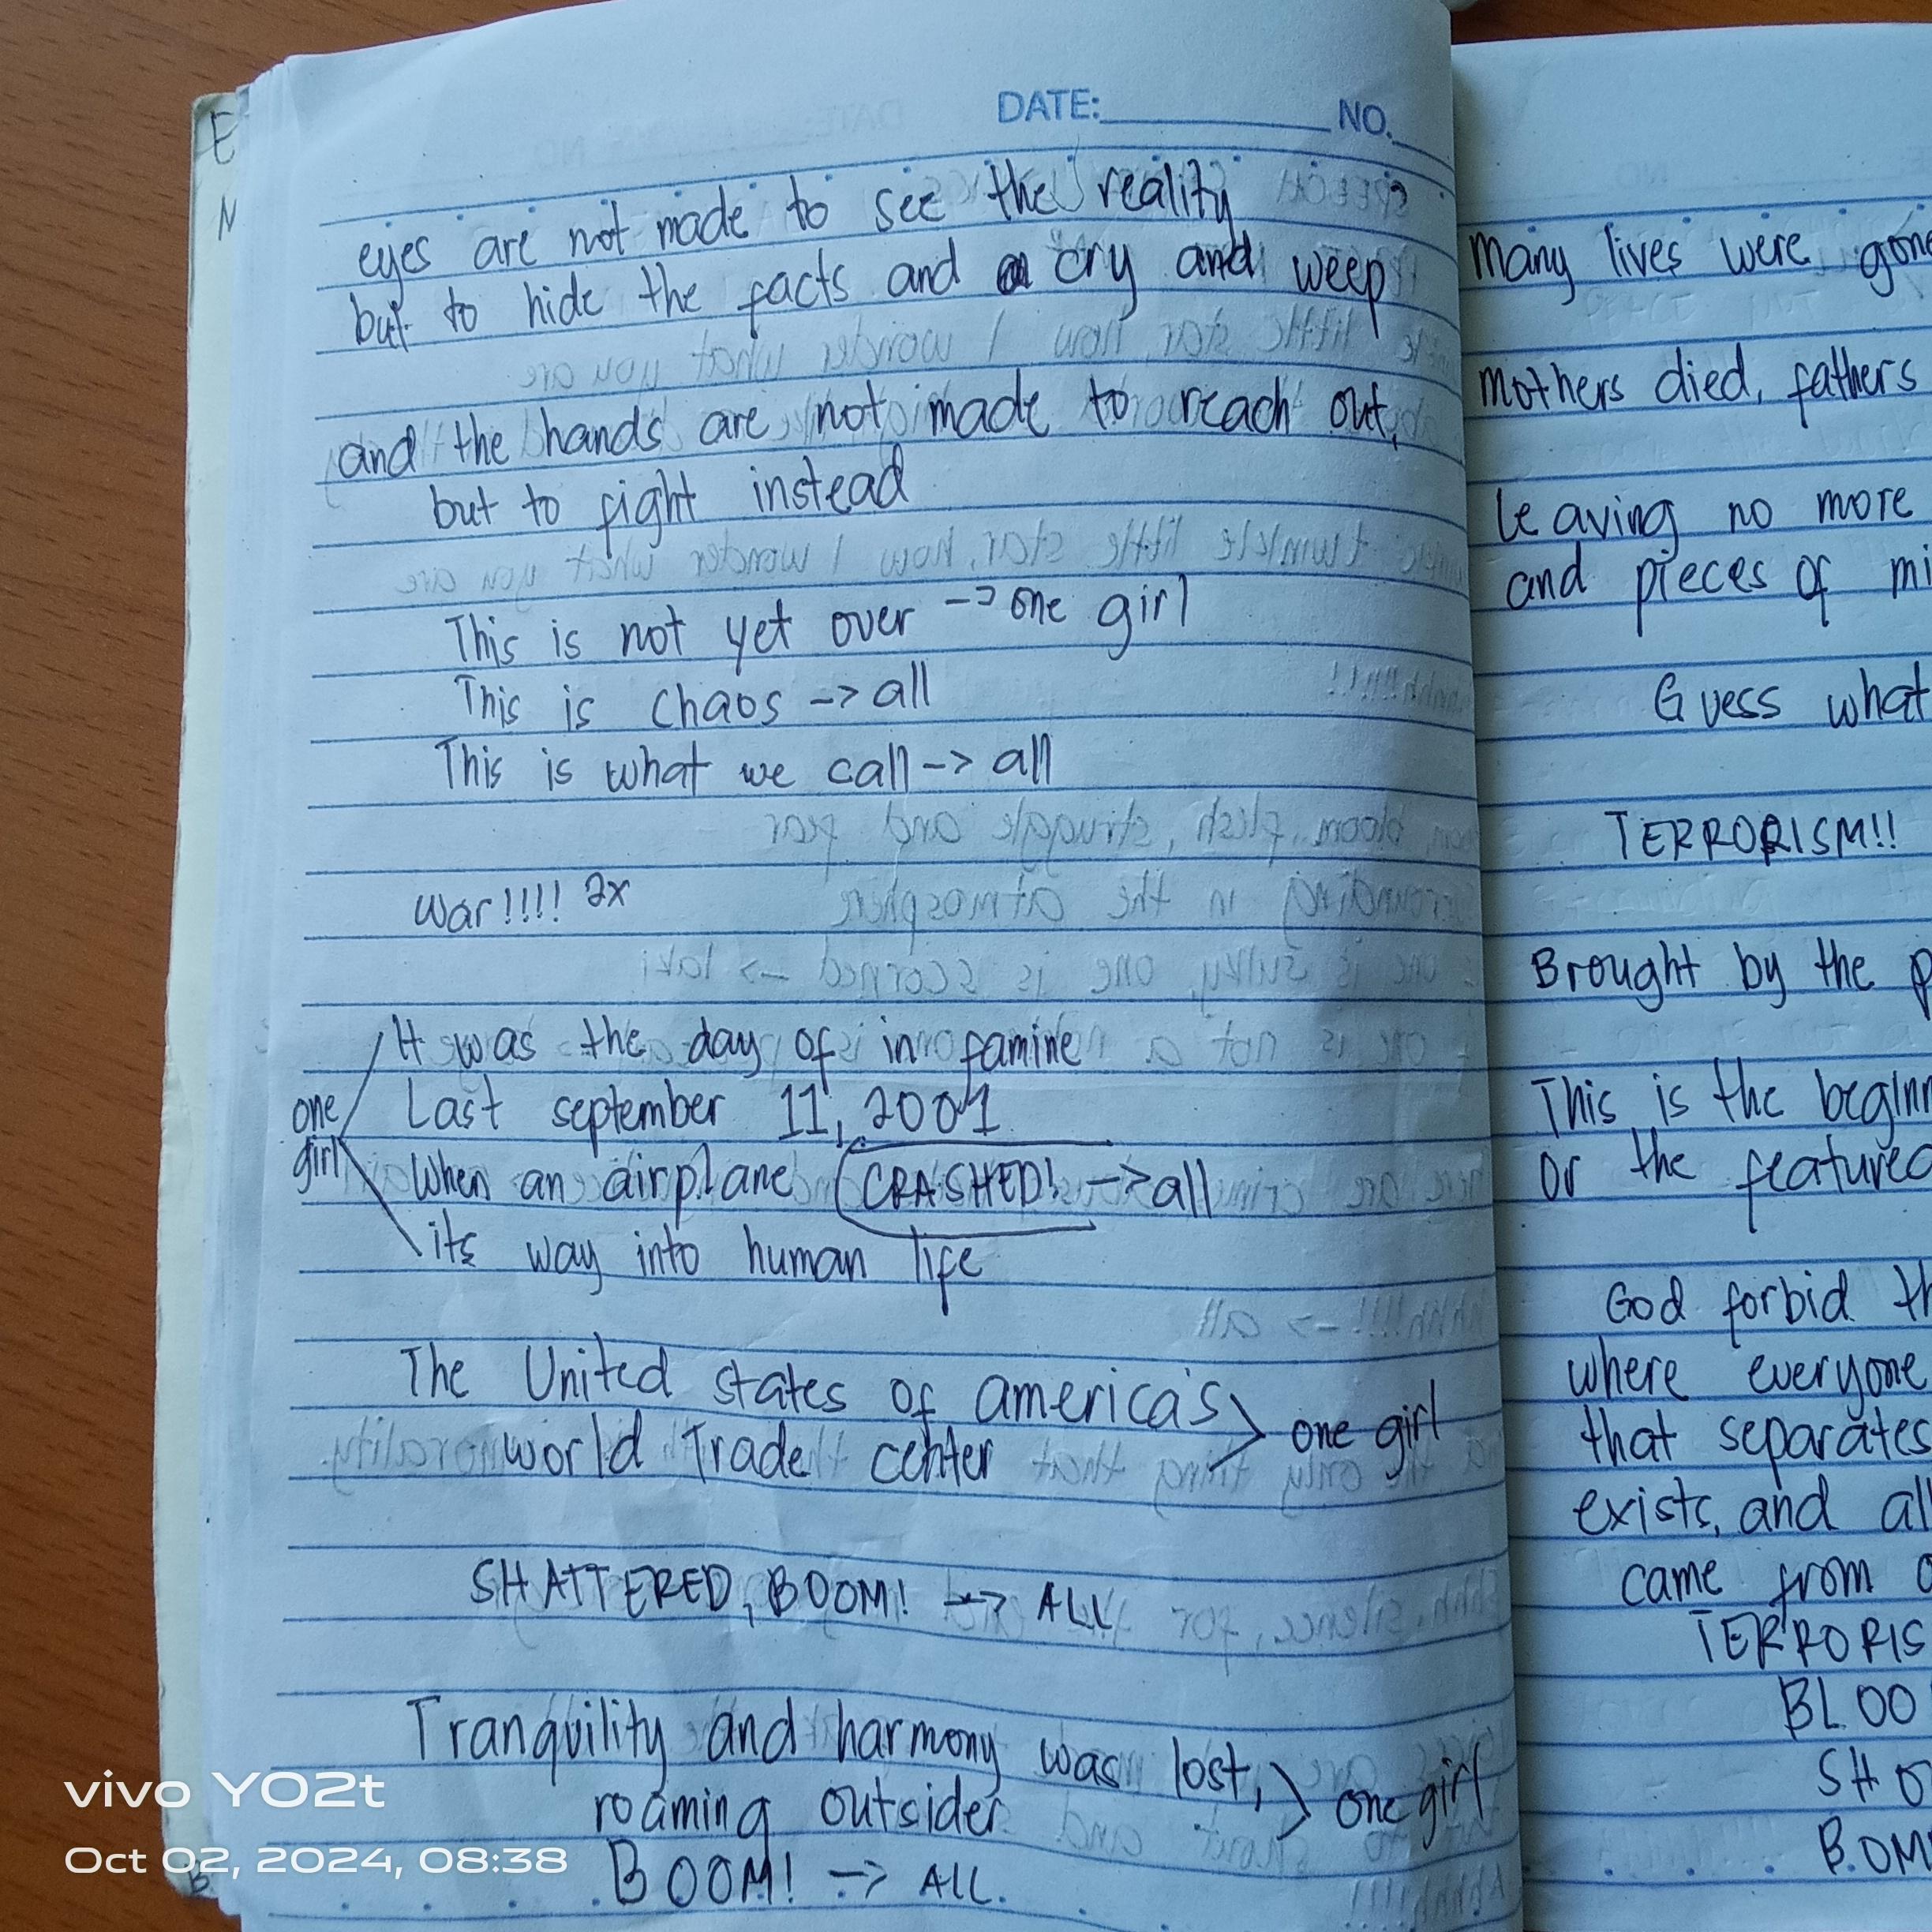 DATE: NO.
eyes are not made to see the reality
but to hide the facts and cry and weep
and the hands are not made to reach out,
but to fight instead
This is not yet over -> one girl
This is chaos -> all
This is what we call -> all
War!!!! 2x
It was the day of in famine
one girl
Last september 11, 2001
When an airplane CRASHED! -> all
its way into human life
The United states of america's
world Trade center
one girl
SHATTERED, BOOM! -> ALL
Tranquility and harmony was lost,
roaming outsider
one girl
BOOM! -> ALL.
many lives were gone
mothers died, fathers
leaving no more
and pieces of
Guess what
TERRORISM!!
Brought by the
This is the
or the featured
God forbid
where everyone
that separates
exists, and
came from
TERRORIS
BLOO
SHO
BOM
E
N
B
vivo Y02t
Oct 02, 2024, 08:38